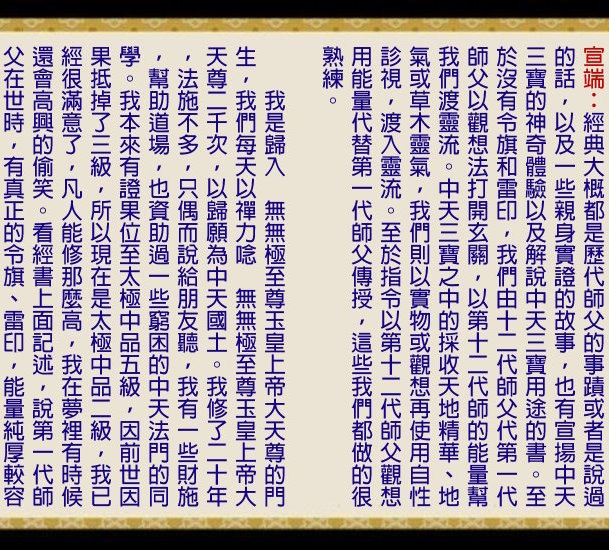 宣端：經典大概都是歷代師父的事蹟或者是說過
的話，以及一些親身實證的故事，也有宣揚中天
三寶的神奇體驗以及解說中天三寶用途的書。至
於沒有令旗和雷印，我們由十二代師父代第一代
師父以觀想法打開玄關，以第十二代師的能量幫
我們渡靈流。中天三寶之中的採收天地精華、地
氣或草木靈氣，我們則以實物或觀想再使用自性
診視，渡入靈流。至於指令以第十二代師父觀想
用能量代替第一代師父傳授，這些我們都做的很
熟練。
我是歸入　無無極至尊玉皇上帝大天尊的門
生，我們每天以禪力唸　無無極至尊玉皇上帝大
天尊二千次，以歸願為中天國土。我修了二十年
，法施不多，只偶而說給朋友聽，我有一些財施
，幫助道場，也資助過一些窮困的中天法門的同
學。我本來有證果位至太極中品五級，因前世因
果抵掉了三級，所以現在是太極中品二級，我已
經很滿意了，凡人能修那麼高，我在夢裡有時候
還會高興的偷笑。看經書上面記述，說第一代師
父在世時，有真正的令旗、雷印，能量純厚較容